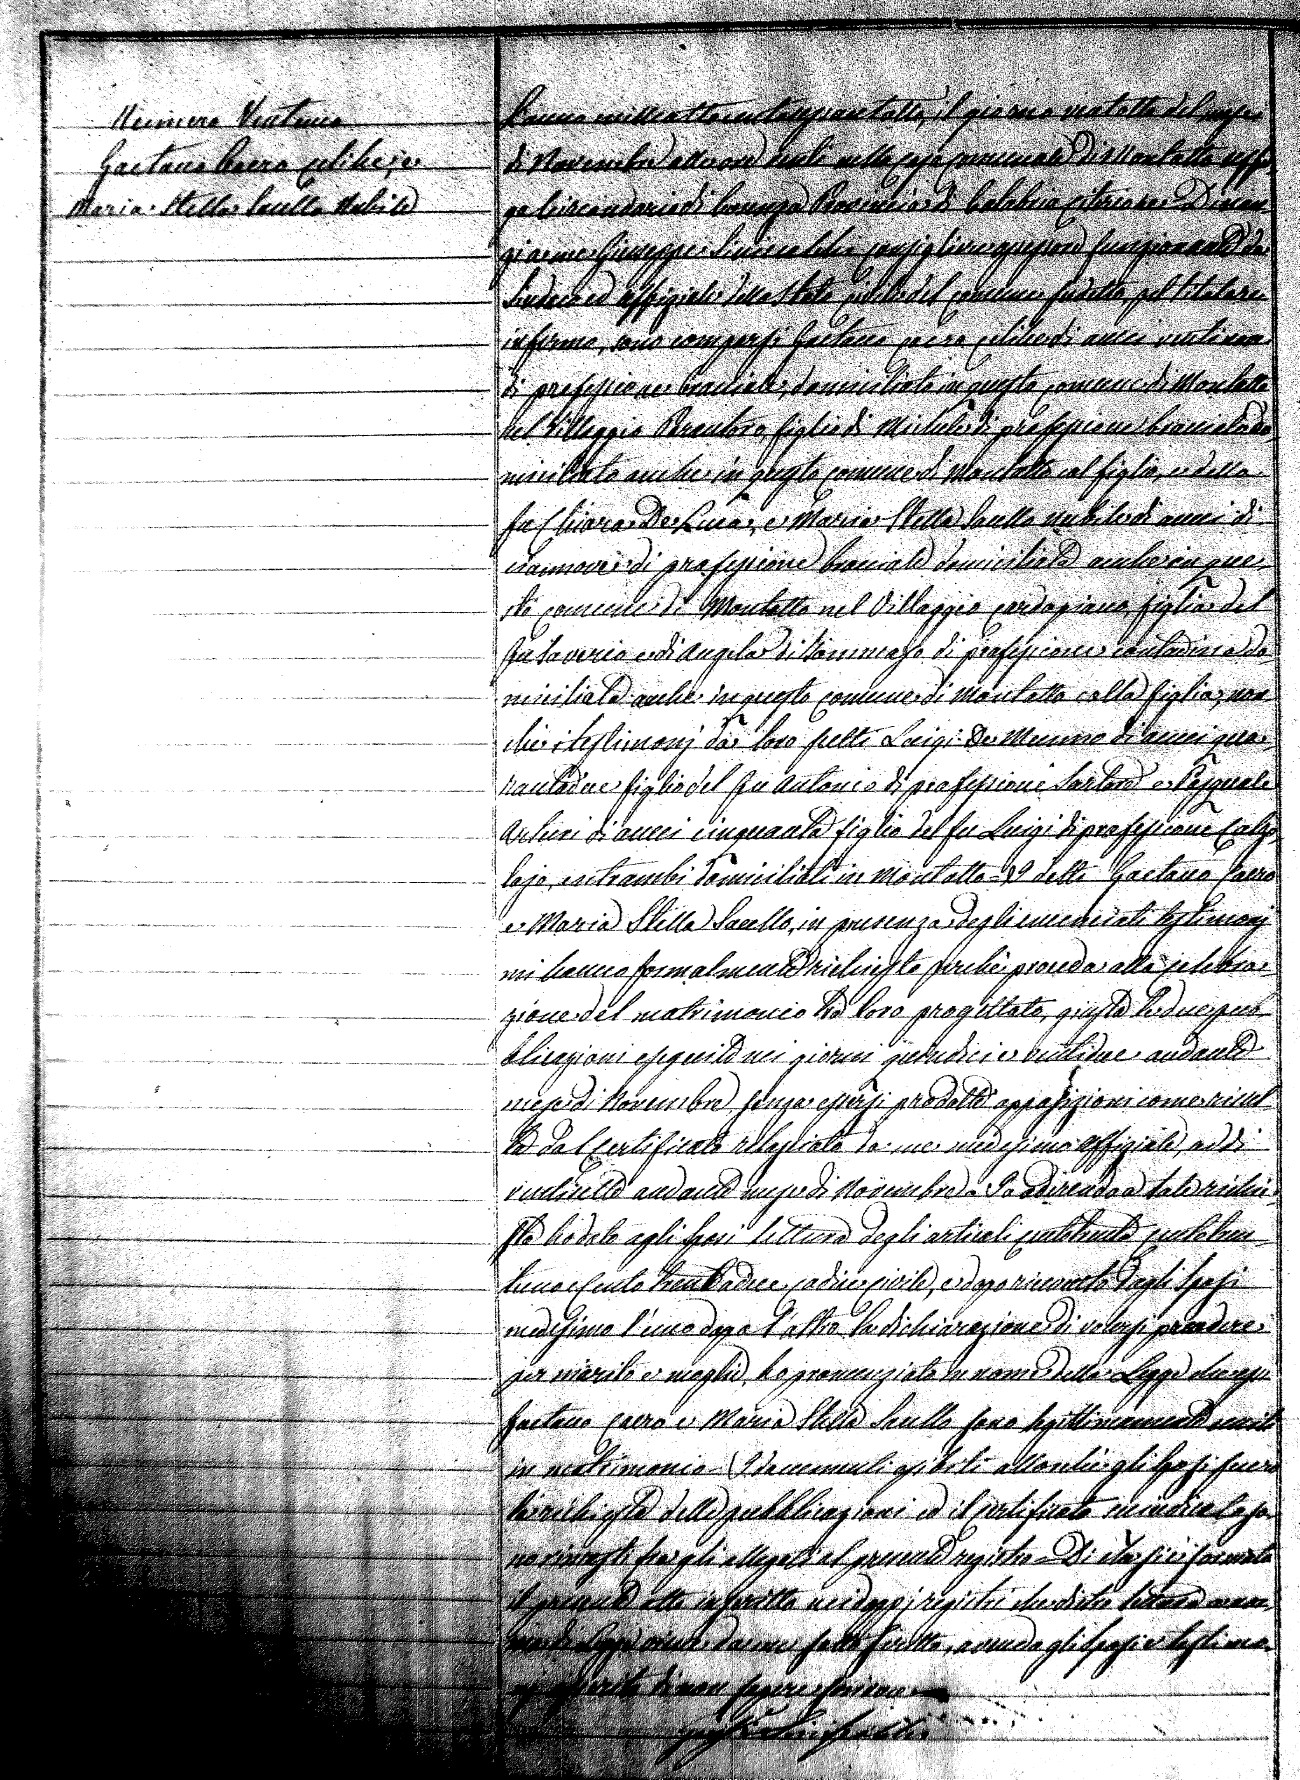 Numero Ventuno
Gaetano Caero celibe, e
Maria Stella Saullo Nubile
L'anno mille ottocento, il giorno ventotto del mese
di Novembre alle ore venti nella casa comunale di Montalto Uffu
go Circondario di Cosenza Provincia di Calabria citeriore Dinan
zi a me Giuseppe consigliere anziano funzionante da
Sindaco ed uffiziale dello Stato civile del comune sudetto, pel titolare
infermo, sono comparsi Gaetano Caero celibe di anni ventinove
di professione bracciale, domiciliato in questo comune di Montalto
nel Villaggio Parantoro figlio di Michele di professione bracciale do
miciliato anche in questo comune di Montalto col figlio, e della
fu Chiara De Luca, e Maria Stella Saullo nubile di anni di
ciannove di professione bracciale domiciliata anche in que
sto comune di Montalto nel Villaggio cardopiano figlia del
fu Saverio e di Angela di Tommaso di professione contadina do
miciliata anche in questo comune di Montalto colla figlia, non
che i testimonj da loro scelti Luigi De Munno di anni qua
rantadue figlio del fu Antonio di professione Sartore e Pasquale
Arturi di anni cinquanta figlio del fu Luigi di professione Calzo
lajo, entrambi domiciliati in Montalto = I detti Gaetano Caero
e Maria Stella Saullo, in presenza degli enunciati testimonj
mi hanno formalmente richiesto perchè proceda alla celebra
zione del matrimonio tra loro progettato, giusta le due pub
blicazioni eseguite nei giorni quindici e ventidue andante
mese di Novembre senza essersi prodotte opposizioni come risul
ta dal Certificato rilasciato da me medesimo uffiziale, ad di
ventisette andante mese di Novembre = Io aderendo a tale richie
sta ho dato agli sposi lettura degli articoli centotrenta centotren
tuno e cento trentadue codice civile, e dopo ricevuto dagli sposi
medesimo l'uno dopo l'altro la dichiarazione di volersi prendere
per marito e moglie, ho pronunziato in nome della Legge che essi
Gaetano Caero e Maria Stella Saullo sono legittimamente uniti
in matrimonio = I documenti esibiti allorchè gli sposi fecero
la richiesta delle pubblicazioni ed il certificato so
no rimasti fra gli allegati al presente registro = Di che si è formato
il presente atto inscritto nei doppj registri che dietro lettura
di Legge viene da me sotto scritto, avendo gli sposi e testimo
nj asserito di non sapere firmare